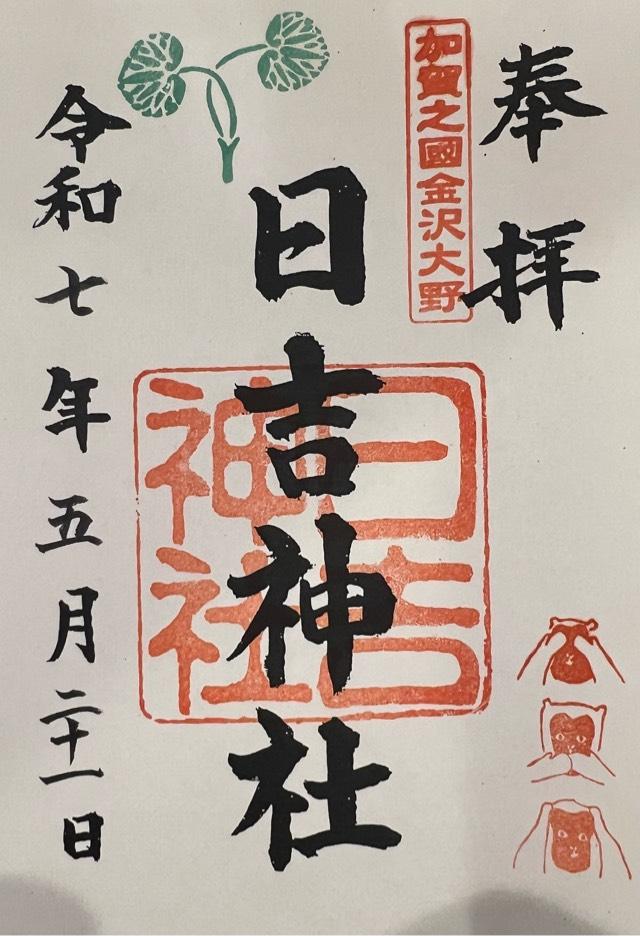 奉拝
加賀之國金沢大野
日吉神社
日吉神社
令和七年五月二十一日